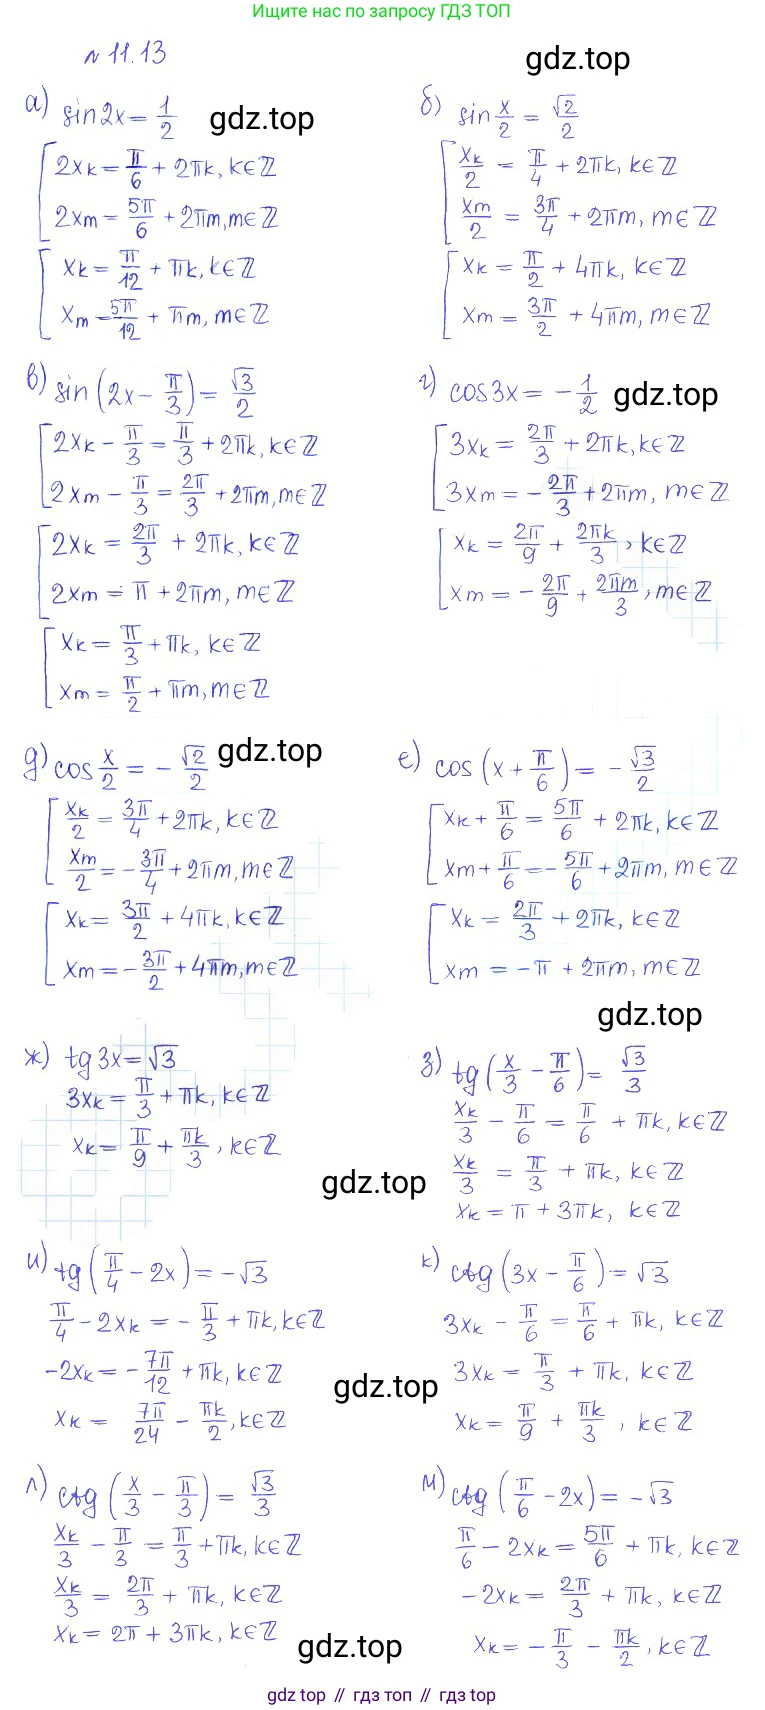 Ищите нас по запросу ГДЗ ТОП
№ 11.13
gdz.top
а) sin2x = 1/2
gdz.top
[ 2xk = π/6 + 2πk, k∈ℤ
2xm = 5π/6 + 2πm, m∈ℤ
[ xk = π/12 + πk, k∈ℤ
xm = 5π/12 + πm, m∈ℤ
б) sin x/2 = √2/2
[ xk/2 = π/4 + 2πk, k∈ℤ
xm/2 = 3π/4 + 2πm, m∈ℤ
[ xk = π/2 + 4πk, k∈ℤ
xm = 3π/2 + 4πm, m∈ℤ
в) sin (2x - π/3) = √3/2
[ 2xk - π/3 = π/3 + 2πk, k∈ℤ
2xm - π/3 = 2π/3 + 2πm, m∈ℤ
[ 2xk = 2π/3 + 2πk, k∈ℤ
2xm = π + 2πm, m∈ℤ
[ xk = π/3 + πk, k∈ℤ
xm = π/2 + πm, m∈ℤ
г) cos3x = -1/2
gdz.top
[ 3xk = 2π/3 + 2πk, k∈ℤ
3xm = -2π/3 + 2πm, m∈ℤ
[ xk = 2π/9 + 2πk/3, k∈ℤ
xm = -2π/9 + 2πm/3, m∈ℤ
д) cos x/2 = -√2/2
gdz.top
[ xk/2 = 3π/4 + 2πk, k∈ℤ
xm/2 = -3π/4 + 2πm, m∈ℤ
[ xk = 3π/2 + 4πk, k∈ℤ
xm = -3π/2 + 4πm, m∈ℤ
е) cos (x + π/6) = -√3/2
[ xk + π/6 = 5π/6 + 2πk, k∈ℤ
xm + π/6 = -5π/6 + 2πm, m∈ℤ
[ xk = 2π/3 + 2πk, k∈ℤ
xm = -π + 2πm, m∈ℤ
gdz.top
ж) tg3x = √3
3xk = π/3 + πk, k∈ℤ
xk = π/9 + πk/3, k∈ℤ
gdz.top
з) tg (x/3 - π/6) = √3/3
xk/3 - π/6 = π/6 + πk, k∈ℤ
xk/3 = π/3 + πk, k∈ℤ
xk = π + 3πk, k∈ℤ
и) tg (π/4 - 2x) = -√3
π/4 - 2xk = -π/3 + πk, k∈ℤ
-2xk = -7π/12 + πk, k∈ℤ
xk = 7π/24 - πk/2, k∈ℤ
gdz.top
к) ctg (3x - π/6) = √3
3xk - π/6 = π/6 + πk, k∈ℤ
3xk = π/3 + πk, k∈ℤ
xk = π/9 + πk/3, k∈ℤ
л) ctg (x/3 - π/3) = √3/3
xk/3 - π/3 = π/3 + πk, k∈ℤ
xk/3 = 2π/3 + πk, k∈ℤ
xk = 2π + 3πk, k∈ℤ
gdz.top
м) ctg (π/6 - 2x) = -√3
π/6 - 2xk = 5π/6 + πk, k∈ℤ
-2xk = 2π/3 + πk, k∈ℤ
xk = -π/3 - πk/2, k∈ℤ
gdz top // гдз топ // gdz top